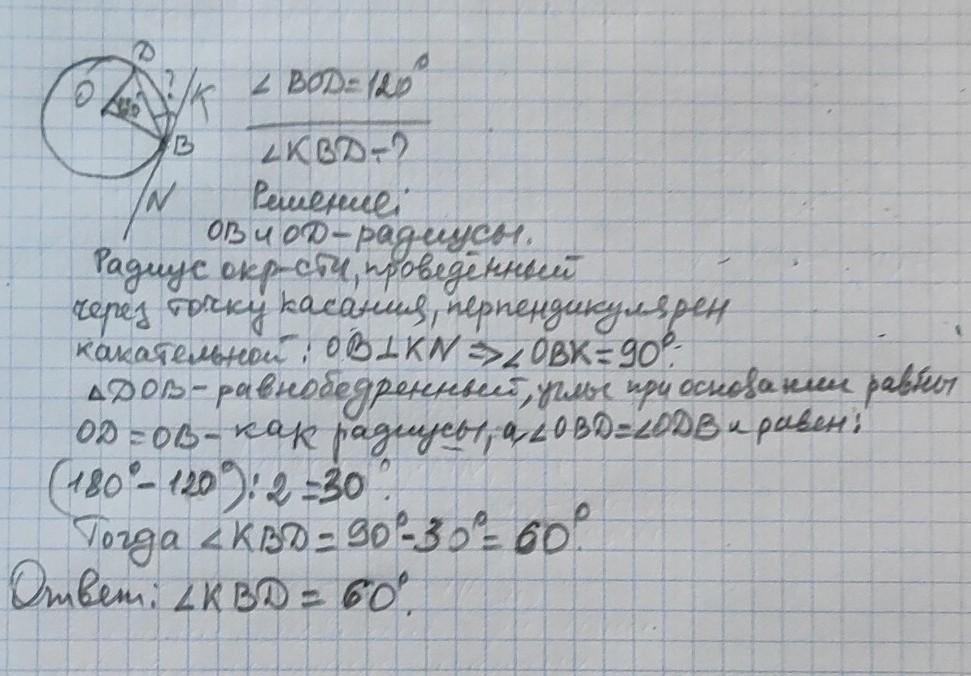 D
O
?
K
120°
B
N
∠BOD=120°
∠KBD-?
Решение:
OB и OD-радиусы.
Радиус окр-сти, проведённый
через точку касания, перпендикулярен
какательной: OB⊥KN⇒∠OBK=90°.
△DOB-равнобедренный, углы при основании равны
OD=OB-как радиусы, а ∠OBD=∠ODB и равен:
(180°-120°):2=30°.
Тогда ∠KBD=90°-30°=60°.
Ответ: ∠KBD=60°.